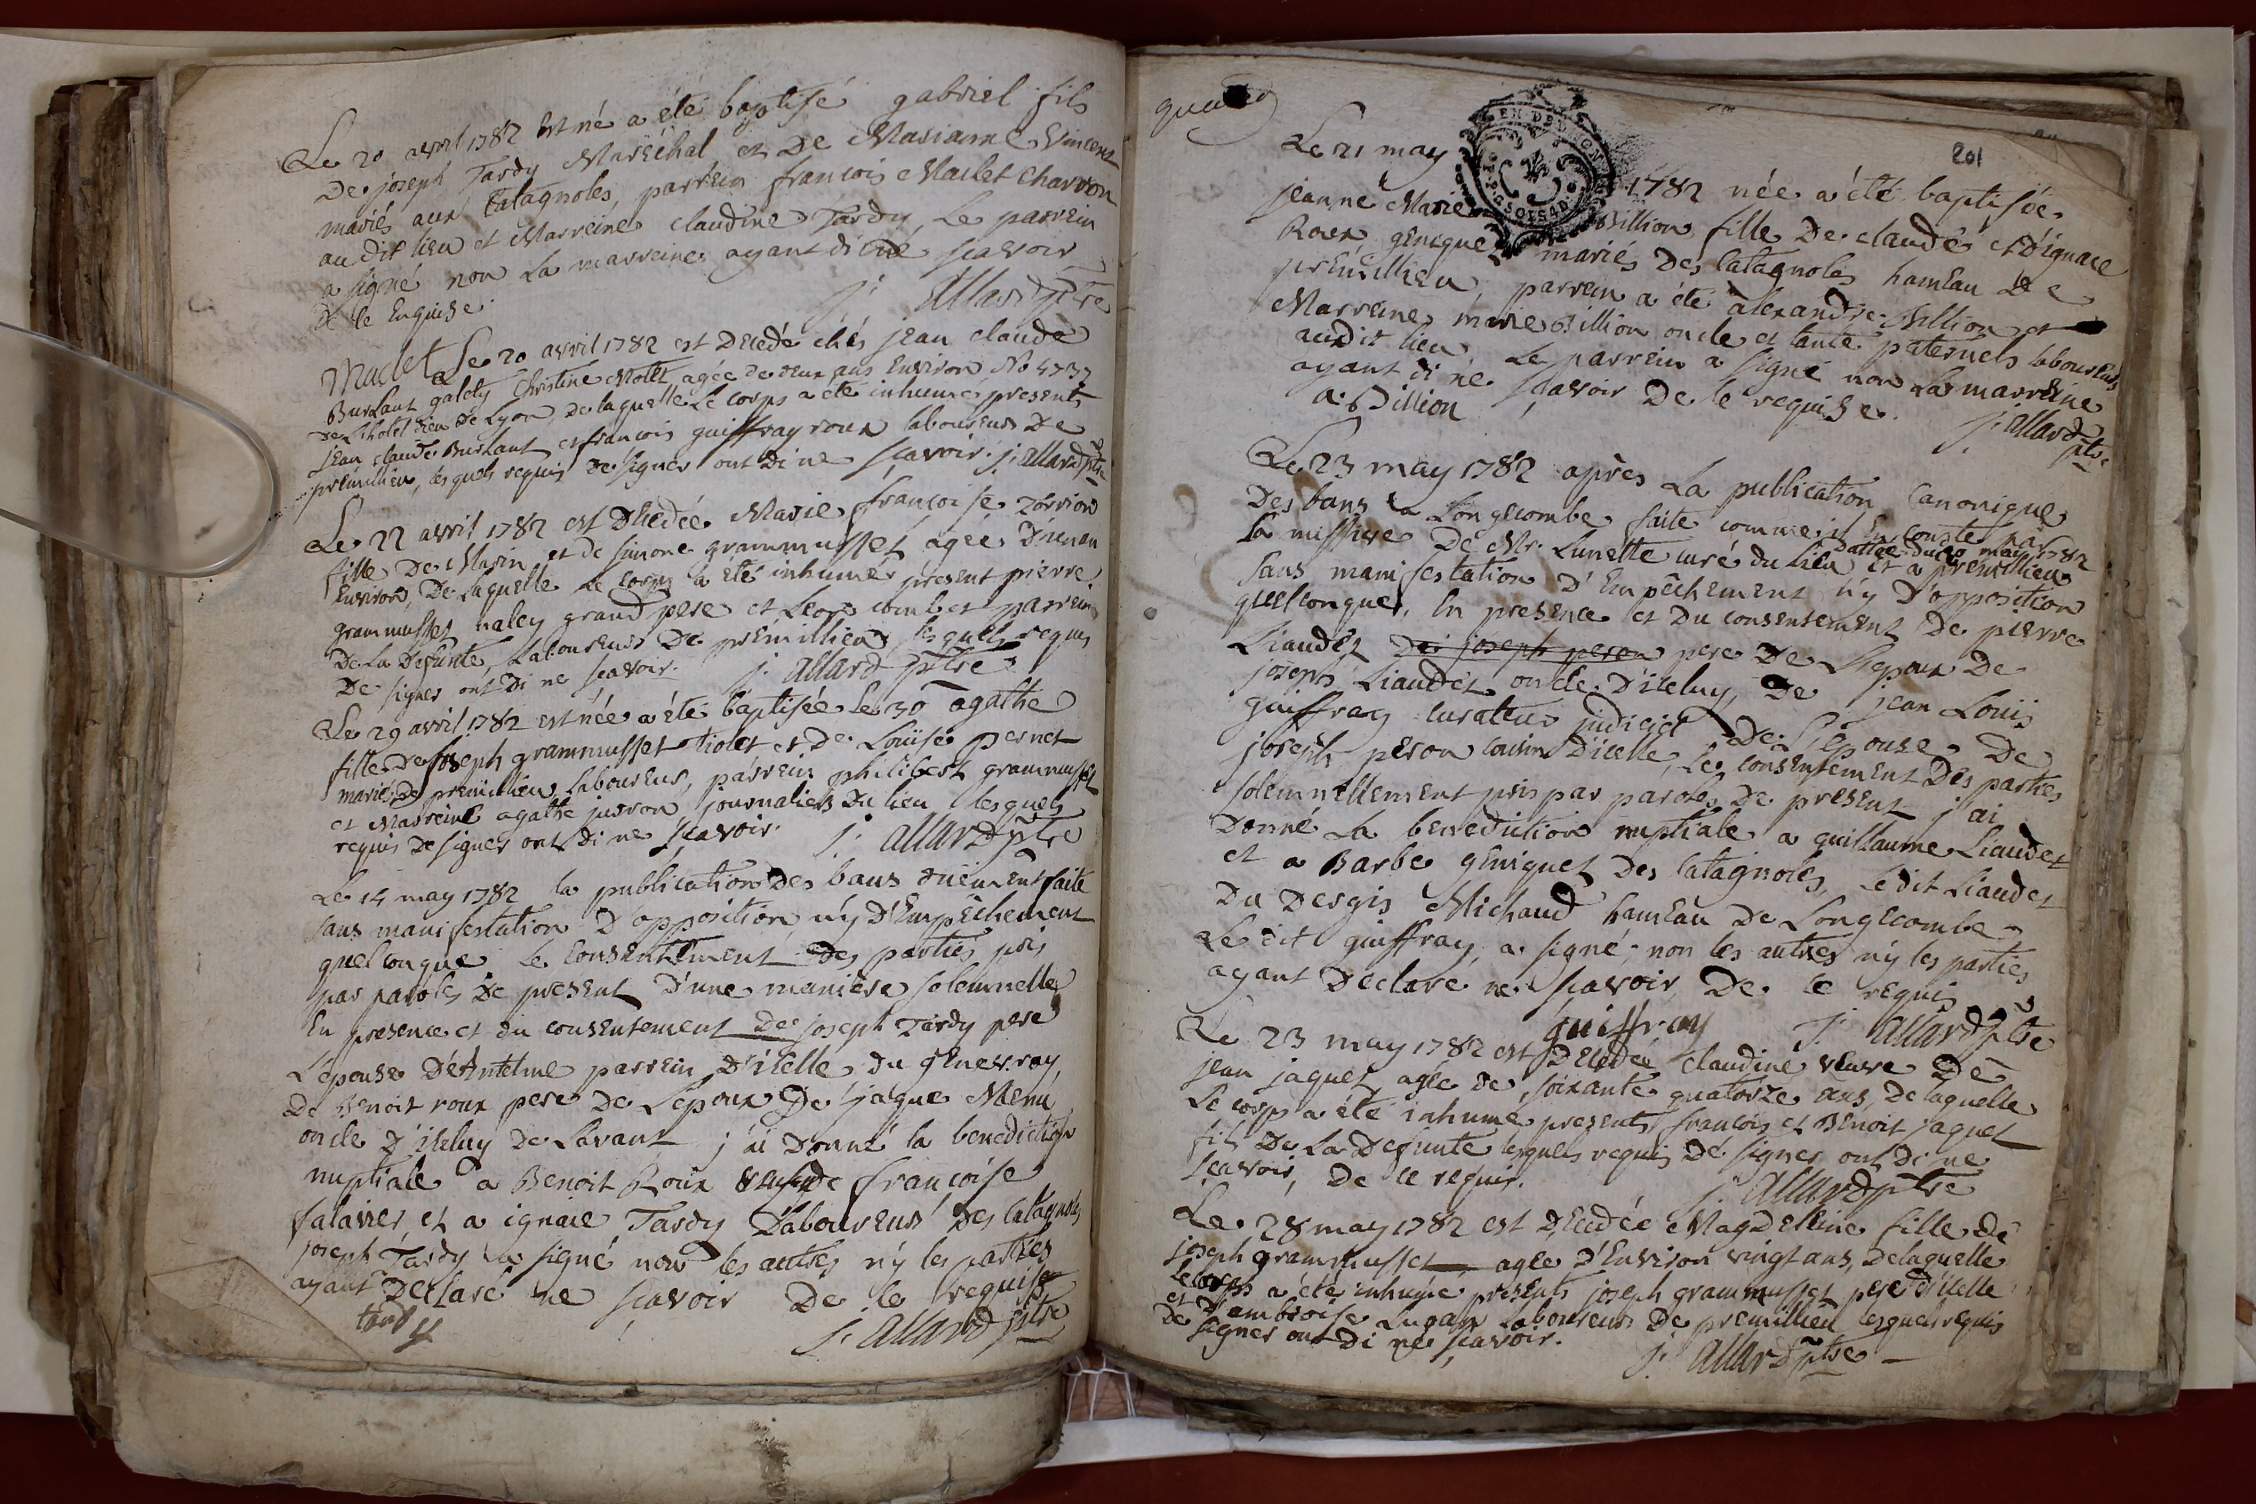 Le 20 avril 1782 est né a été baptisé gabriel fils
De joseph Tardy Maréchal et De Marianne Vincent
mariés aux Catagnoles, parrein francois Maclet charron
au dit lieu et Marreine claudine Tardy, Le parrein
a signé non La marreine ayant di ne sçavoir
De ce Enquise. j. allard ptre
Maclet
Le 20 avril 1782 est Decedé chés jean claude
Burlaut galety Christine Molet, agée de deux ans Environ No 4737
De L'hotel Dieu de Lyon, de laquelle Le corps a été inhumé presents
jean claude Burlaut et francois guiffray roux laboureurs De
premillieu, lesquels requis de signer ont di ne sçavoir. j. allard ptre
Le 22 avril 1782 est Decedée Marie françoise Torrion
fille De Marin et de simone grammusset agée D'un an
Environ, De Laquelle Le corps a été inhumé present pierre
grammusset naley grand pere et Leon combet parrein
De La Defunte, Laboureurs De premillieu, lesquels requis
De signer ont Di ne sçavoir. j. allard ptre
Le 29 avril 1782 est née a été baptisée Le 30 agathe
fille de joseph grammusset tiolet et de Louïse pernet
mariés de premillieu Laboureurs, parrein philibert grammusset
et Marreine agathe jusron, journaliers Du lieu lesquels
requis De signer ont di ne sçavoir. j. allard ptre
Le 14 may 1782 la publication Des bans duëment faite
sans manifestation D'opposition n'y D'Empêchement
quelconque Le Consentement Des parties pris
par paroles De present D'une maniere solemnelle
En presence et du consentement De joseph Tardy pere
L'epouse D'Antelme parrein D'icelle du genevray,
De Benoit roux pere De L'epoux De jaque Menu
oncle D'iceluy De Lavant j'ai Donné la benediction
nuptiale a Benoit Roux veuf de françoise
falavier, et a ignace Tardy Laboureurs Des Catagnoles
joseph Tardy a signé non les autres n'y les parties
ayant Declaré ne sçavoir De ce requise
tardy j. allard ptre
201
Le 21 may 1782 née a été baptisée
jeanne Marie Billion fille De claude et D'ignace
Roux genique mariés Des Catagnoles hameau De
premillieu, parrein a été alexandre Billion et
Marreine marie Billion oncle et tante paternels laboureurs
audit lieu. Le parrein a signé non La marreine
ayant di ne sçavoir De ce requise.
a. Billion j. allard ptre
Le 23 may 1782 après La publication Canonique
Des bans a Longecombe faite comme il En conste par
La missive De Mr. Lunette curé du Lieu Dattée du 20 may 1782 et a premillieu
sans manifestation D'Empêchement n'y D'opposition
quelconque, En presence et Du consentement De pierre
Liaudet De joseph peron pere De L'epoux De
joseph Liaudet oncle D'iceluy, De jean Louis
guiffray curateur judiciel De L'epouse, De
joseph peron cousin D'icelle, Le consentement Des parties
solemnellement pris par paroles De present j'ai
Donné La benediction nuptiale a guillaume Liaudet
et a Barbe geniquet Des Catagnoles, Ledit Liaudet
Du Desgis Michaud hameau De Longecombe
Le dit guiffray, a signé, non les autres n'y les parties
ayant Declaré ne sçavoir De ce requis
guiffray j. allard ptre
Le 23 may 1782 est Decedée Claudine veuve De
jean jaquet, agée de soixante quatorze ans, De laquelle
Le corps a été inhumé presents francois et Benoit jaquet
fils De La Defunte lesquels requis De signer ont di ne
sçavoir, De ce requis. j. allard ptre
Le 28 may 1782 est Decedée Magdelleine fille De
joseph grammusset agée D'Environ vingt ans, De laquelle
Le corps a été inhumé presents joseph grammusset pere D'icelle
et D'ambroise Lugan Laboureurs De premillieu lesquels requis
De signer ont Di ne sçavoir. j. allard ptre